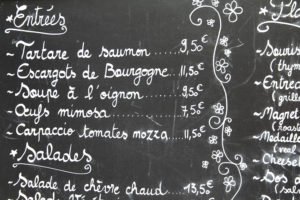 Entrées
~ Tartare de saumon ...... 9,50€
~ Escargots de Bourgogne... 11,50€
~ Soupe à l'oignon ....... 9,50€
~ Œufs mimosa ......... 7,50€
~ Carpaccio tomates mozza.. 11,50€
* Salades
~ Salade de chèvre chaud ... 13,50€
Souris
(thym
Entrec
(grill
Magret
Médaillo
~ Cheese